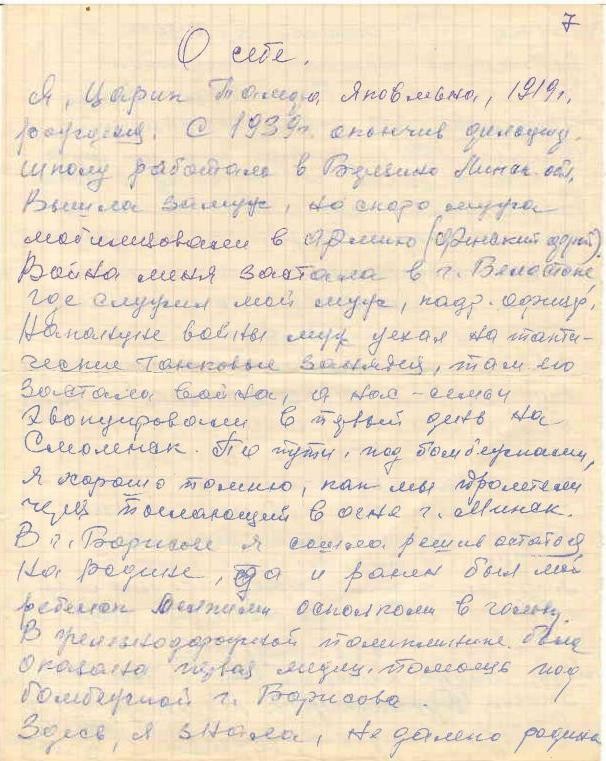 7
О себе.
Я, Царик Тамара Яковлевна, 1919г.
рождения. С 1939г. окончив
школу работала в Минск. обл.
Вышла замуж, но скоро мужа
мобилизовали в армию (финский фронт).
Война меня застала в г. Белостоке,
где служил мой муж, кадр. офицер.
Накануне войны муж уехал на такти-
ческие танковые занятия, там его
застала война, а нас - семьи
эвакуировали в первый день на
Смоленск. По пути, под бомбежками,
я хорошо помню, как мы
через пылающий в огне г. Минск.
В г. Борисове я сошла решив остаться
на родине, да и ранен был мой
ребенок осколками в голову.
В железнодорожной поликлинике была
оказана первая медиц. помощь под
бомбежкой г. Борисова.
Здесь, я знала, не далеко родина